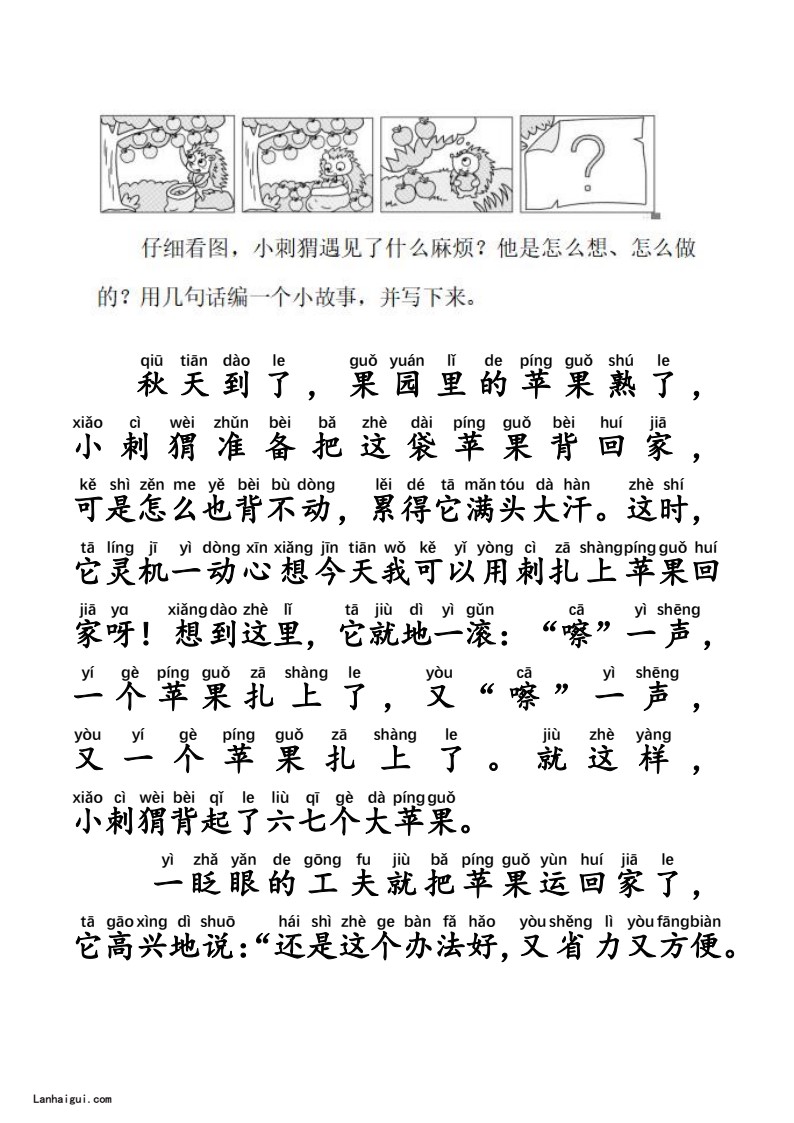 ?
仔细看图，小刺猬遇见了什么麻烦？他是怎么想、怎么做
的？用几句话编一个小故事，并写下来。
qiū tiān dào le guǒ yuán lǐ de píng guǒ shú le
秋天到了，果园里的苹果熟了，
xiǎo cì wèi zhǔn bèi bǎ zhè dài píng guǒ bèi huí jiā
小刺猬准备把这袋苹果背回家，
kě shì zěn me yě bèi bù dòng lěi dé tā mǎn tóu dà hàn zhè shí
可是怎么也背不动，累得它满头大汗。这时，
tā líng jī yì dòng xīn xiǎng jīn tiān wǒ kě yǐ yòng cì zā shàng píng guǒ huí
它灵机一动心想今天我可以用刺扎上苹果回
jiā ya xiǎng dào zhè lǐ tā jiù dì yì gǔn cā yì shēng
家呀！想到这里，它就地一滚：“嚓”一声，
yí gè píng guǒ zā shàng le yòu cā yì shēng
一个苹果扎上了，又“嚓”一声，
yòu yí gè píng guǒ zā shàng le jiù zhè yàng
又一个苹果扎上了。就这样，
xiǎo cì wèi bèi qǐ le liù qī gè dà píng guǒ
小刺猬背起了六七个大苹果。
yì zhǎ yǎn de gōng fu jiù bǎ píng guǒ yùn huí jiā le
一眨眼的工夫就把苹果运回家了，
tā gāo xìng dì shuō hái shì zhè ge bàn fǎ hǎo yòu shěng lì yòu fāng biàn
它高兴地说：“还是这个办法好，又省力又方便。
Lanhaigui.com